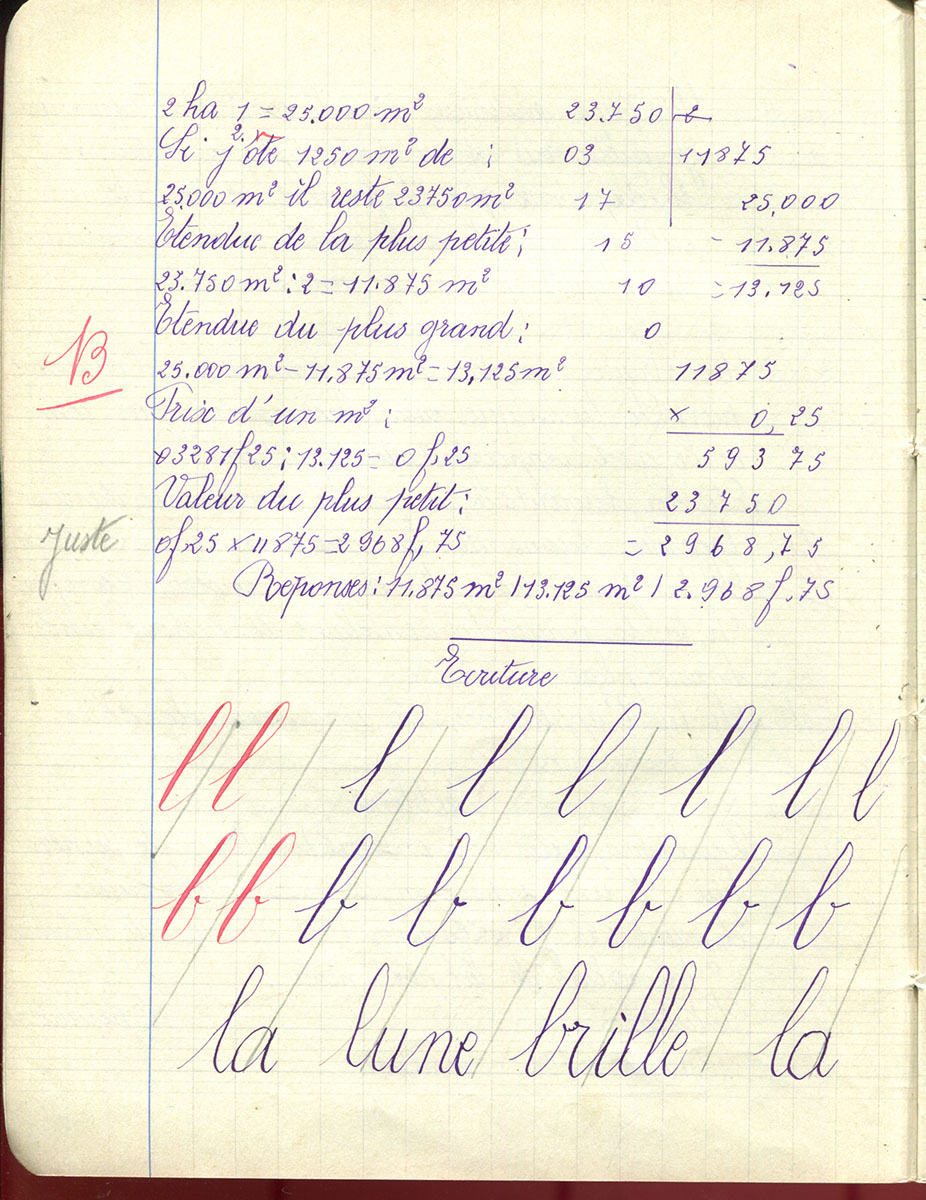 2 ha 1/2 = 25.000 m²
23.750 | 2
Si j'ôte 1250 m² de :
03 | 11875
25.000 m² il reste 23750 m²
17
25.000
Etendue de la plus petite :
15
- 11.875
23.750 m² : 2 = 11.875 m²
10
= 13.125
Etendue du plus grand :
0
25.000 m² - 11.875 m² = 13.125 m²
11875
Prix d'un m² :
× 0,25
03281f25 : 13.125 = 0f.25
59375
Valeur du plus petit :
23750
0f25 × 11875 = 2968f,75
= 2968,75
Réponses : 11.875 m² / 13.125 m² / 2.968f.75
B
juste
Ecriture
l l l l l l l l
b b b b b b b b
la lune brille la